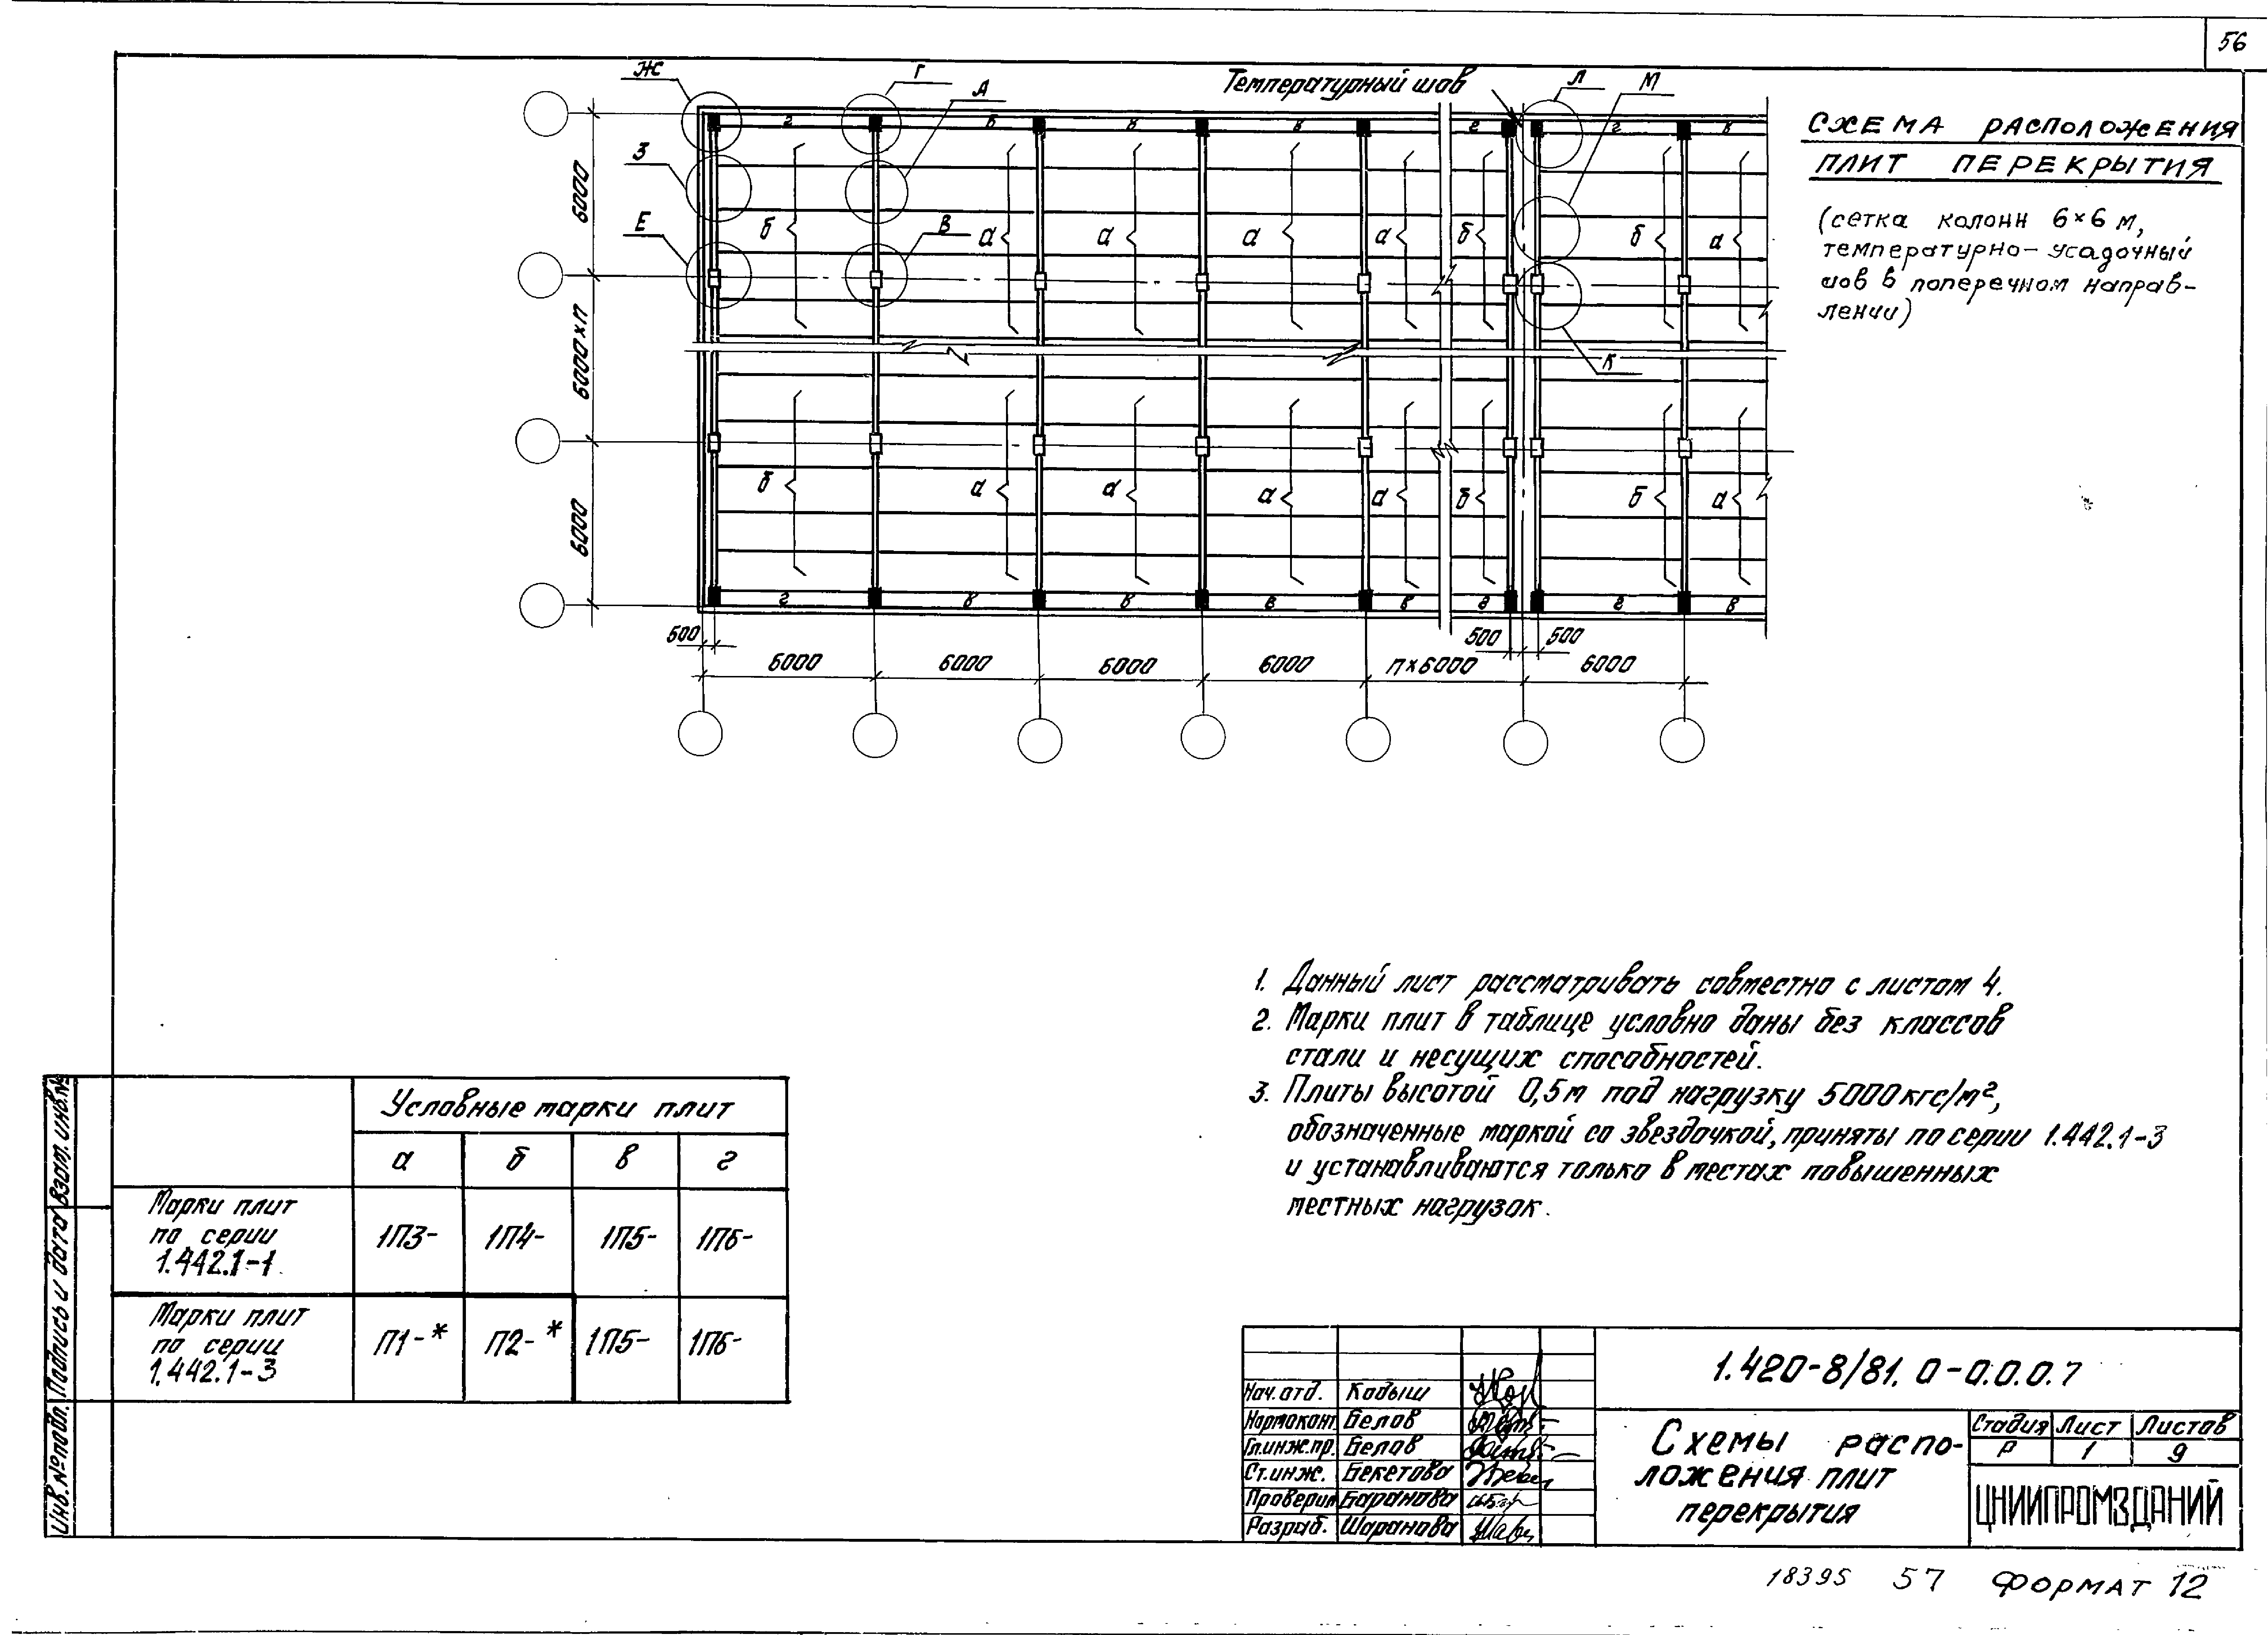 56
Ж
Г
А
Температурный шов
Л
М
З
Е
В
К
г
в
в
в
г
г
в
б
а
а
а
а
б
б
а
б
а
а
а
а
б
б
а
г
в
в
в
в
г
г
в
6000
6000×п
6000
500
500
500
6000
6000
6000
6000
п×6000
6000
СХЕМА РАСПОЛОЖЕНИЯ
ПЛИТ ПЕРЕКРЫТИЯ
(сетка колонн 6×6 м,
температурно-усадочный
шов в поперечном направ-
лении)
1. Данный лист рассматривать совместно с листом 4.
2. Марки плит в таблице условно даны без классов
стали и несущих способностей.
3. Плиты высотой 0,5м под нагрузку 5000кгс/м²,
обозначенные маркой со звездочкой, приняты по серии 1.442.1-3
и устанавливаются только в местах повышенных
местных нагрузок.
Условные марки плит
а б в г
Марки плит
по серии
1.442.1-1
1П3- 1П4- 1П5- 1П6-
Марки плит
по серии
1.442.1-3
П1-* П2-* 1П5- 1П6-
Взам. инв.№
Подпись и дата
Инв.№подл.
Нач.отд. Кодыш
Нормоконт. Белов
Гл.инж.пр. Белов
Ст.инж. Бекетова
Проверил Баранова
Разраб. Шаранова
1.420-8/81. 0-0.0.0.7
Схемы распо-
ложения плит
перекрытия
Стадия Лист Листов
Р 1 9
ЦНИИПРОМЗДАНИЙ
18395 57 Формат 12